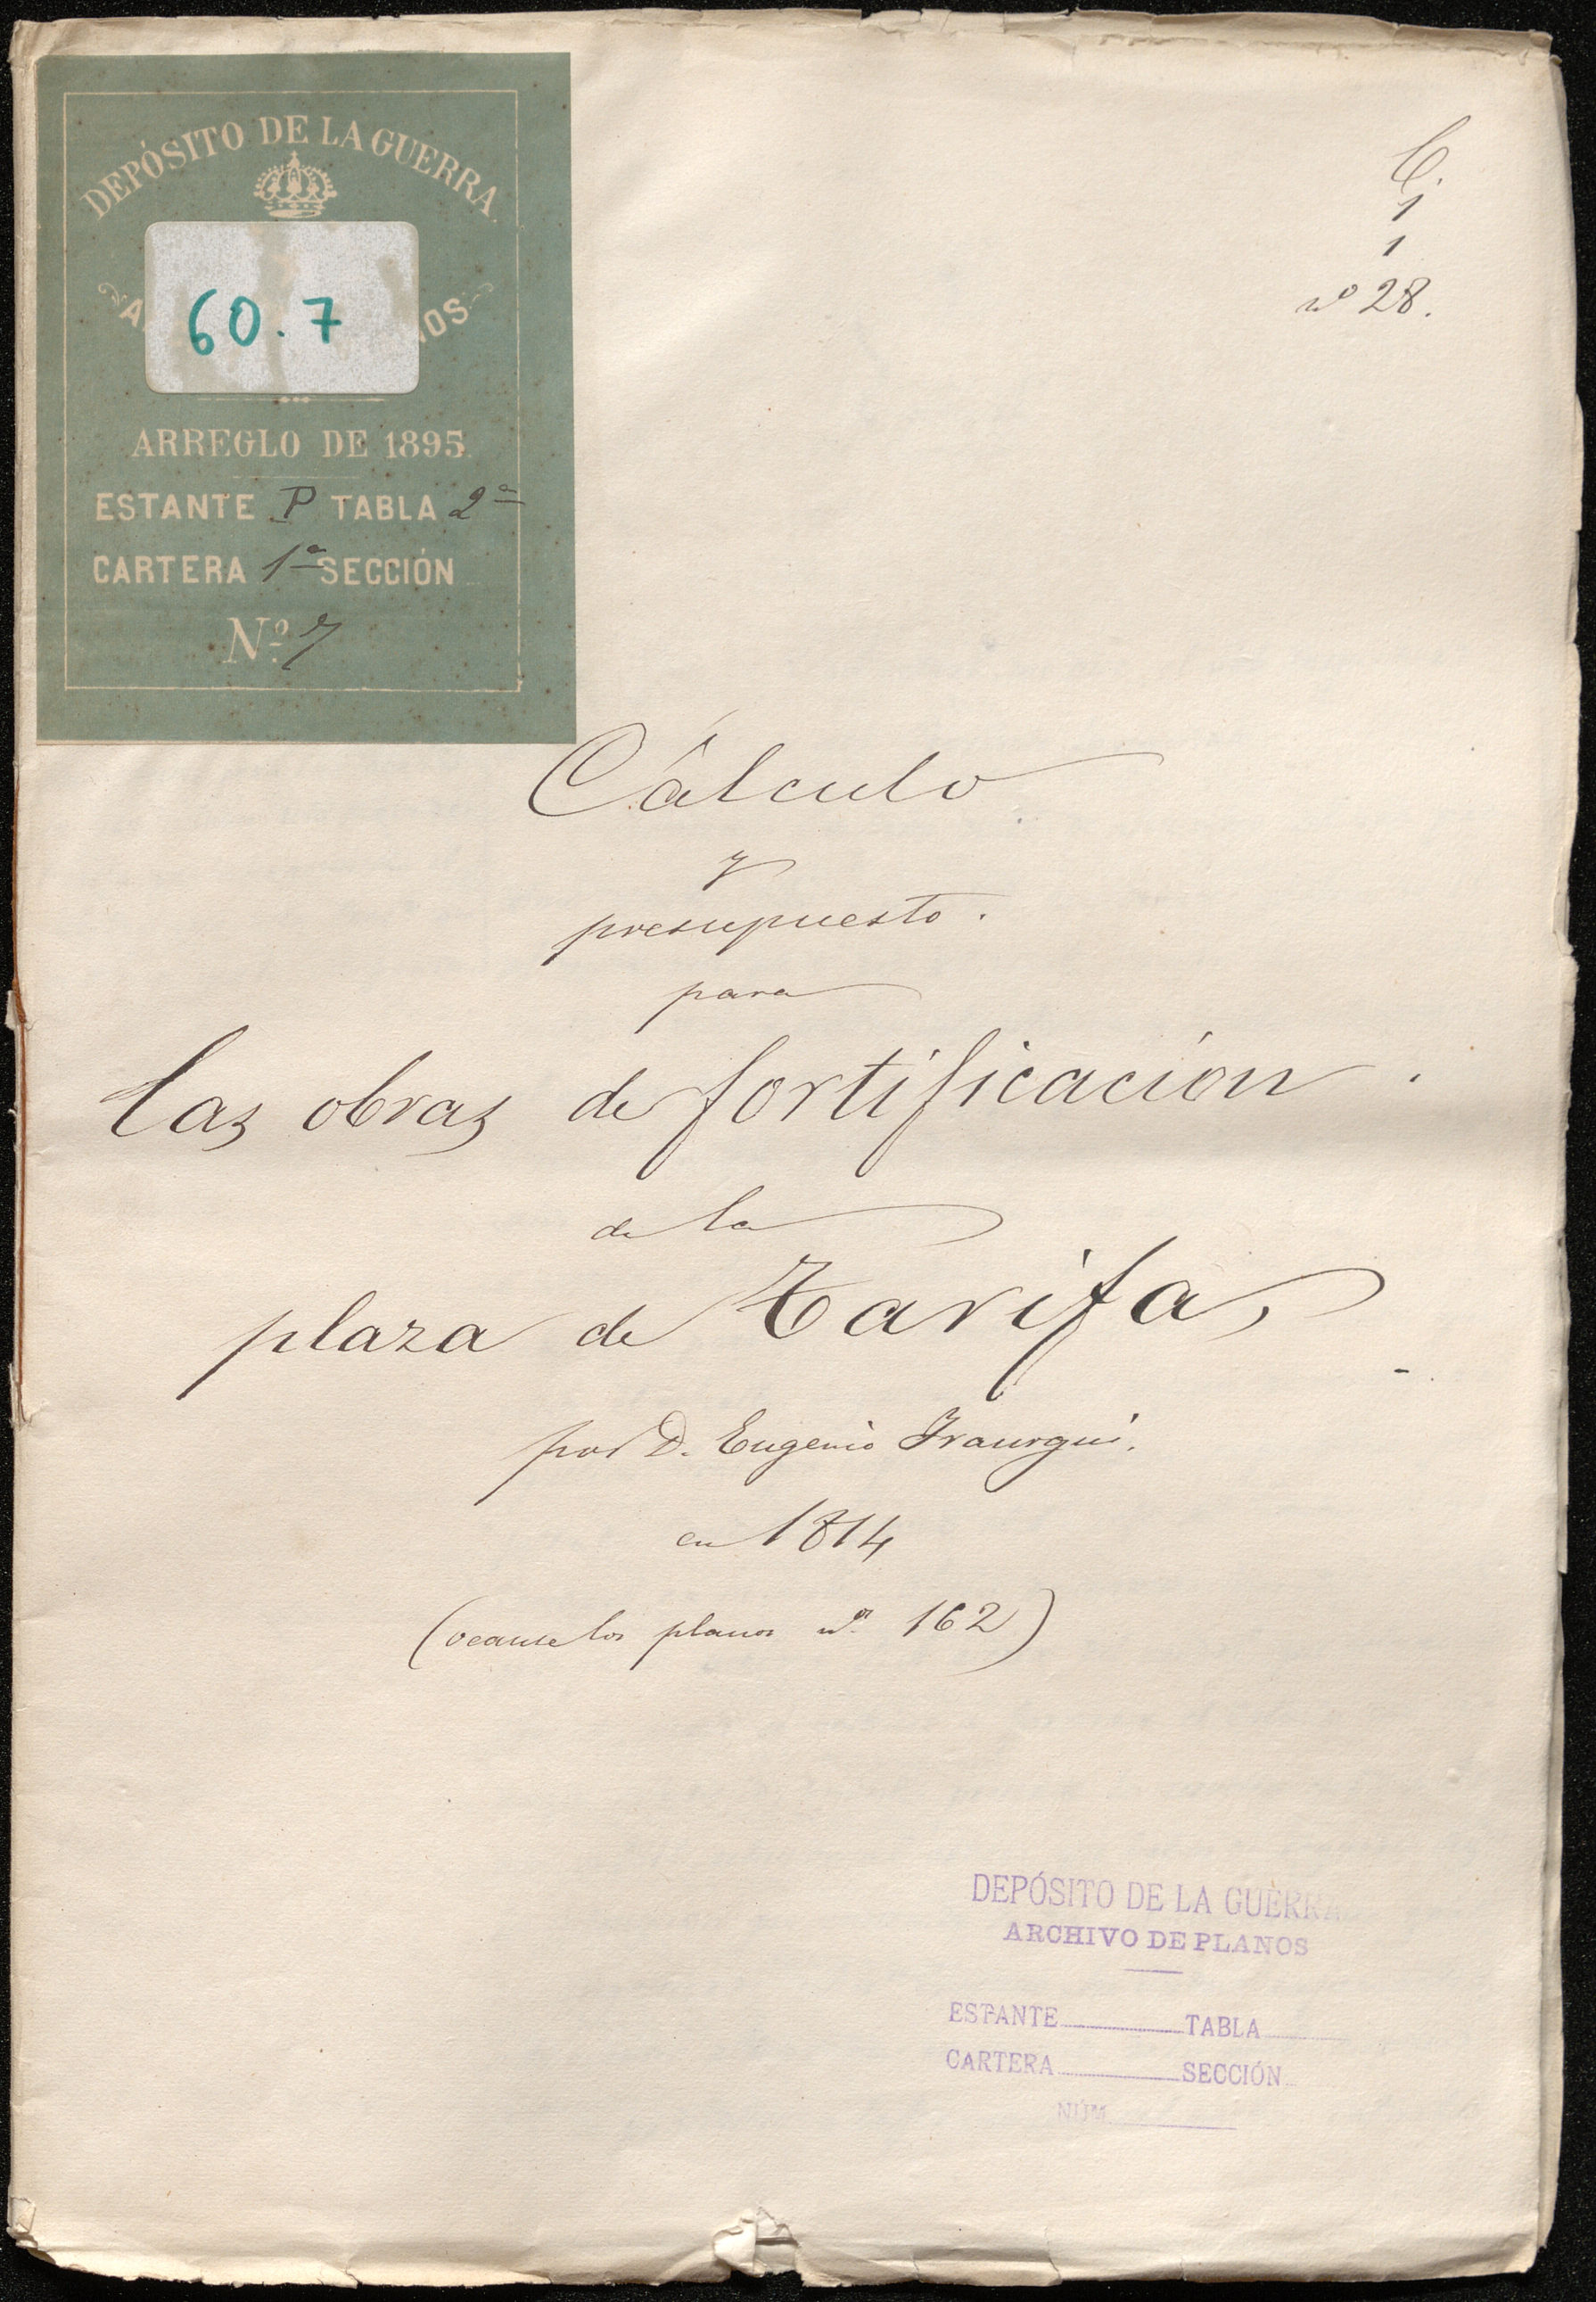 DEPÓSITO DE LA GUERRA
60.7
ARREGLO DE 1895
ESTANTE P TABLA 2ª
CARTERA 1ª SECCIÓN
Nº 7
C.
1
1
nº 28.
Cálculo
y
presupuesto.
para
las obras de fortificación.
de la
plaza de Tarifa,
por D. Eugenio Iraurgui.
en 1814
(veanse los planos nº 162)
DEPÓSITO DE LA GUERRA
ARCHIVO DE PLANOS
ESTANTE TABLA
CARTERA SECCIÓN
NÚM